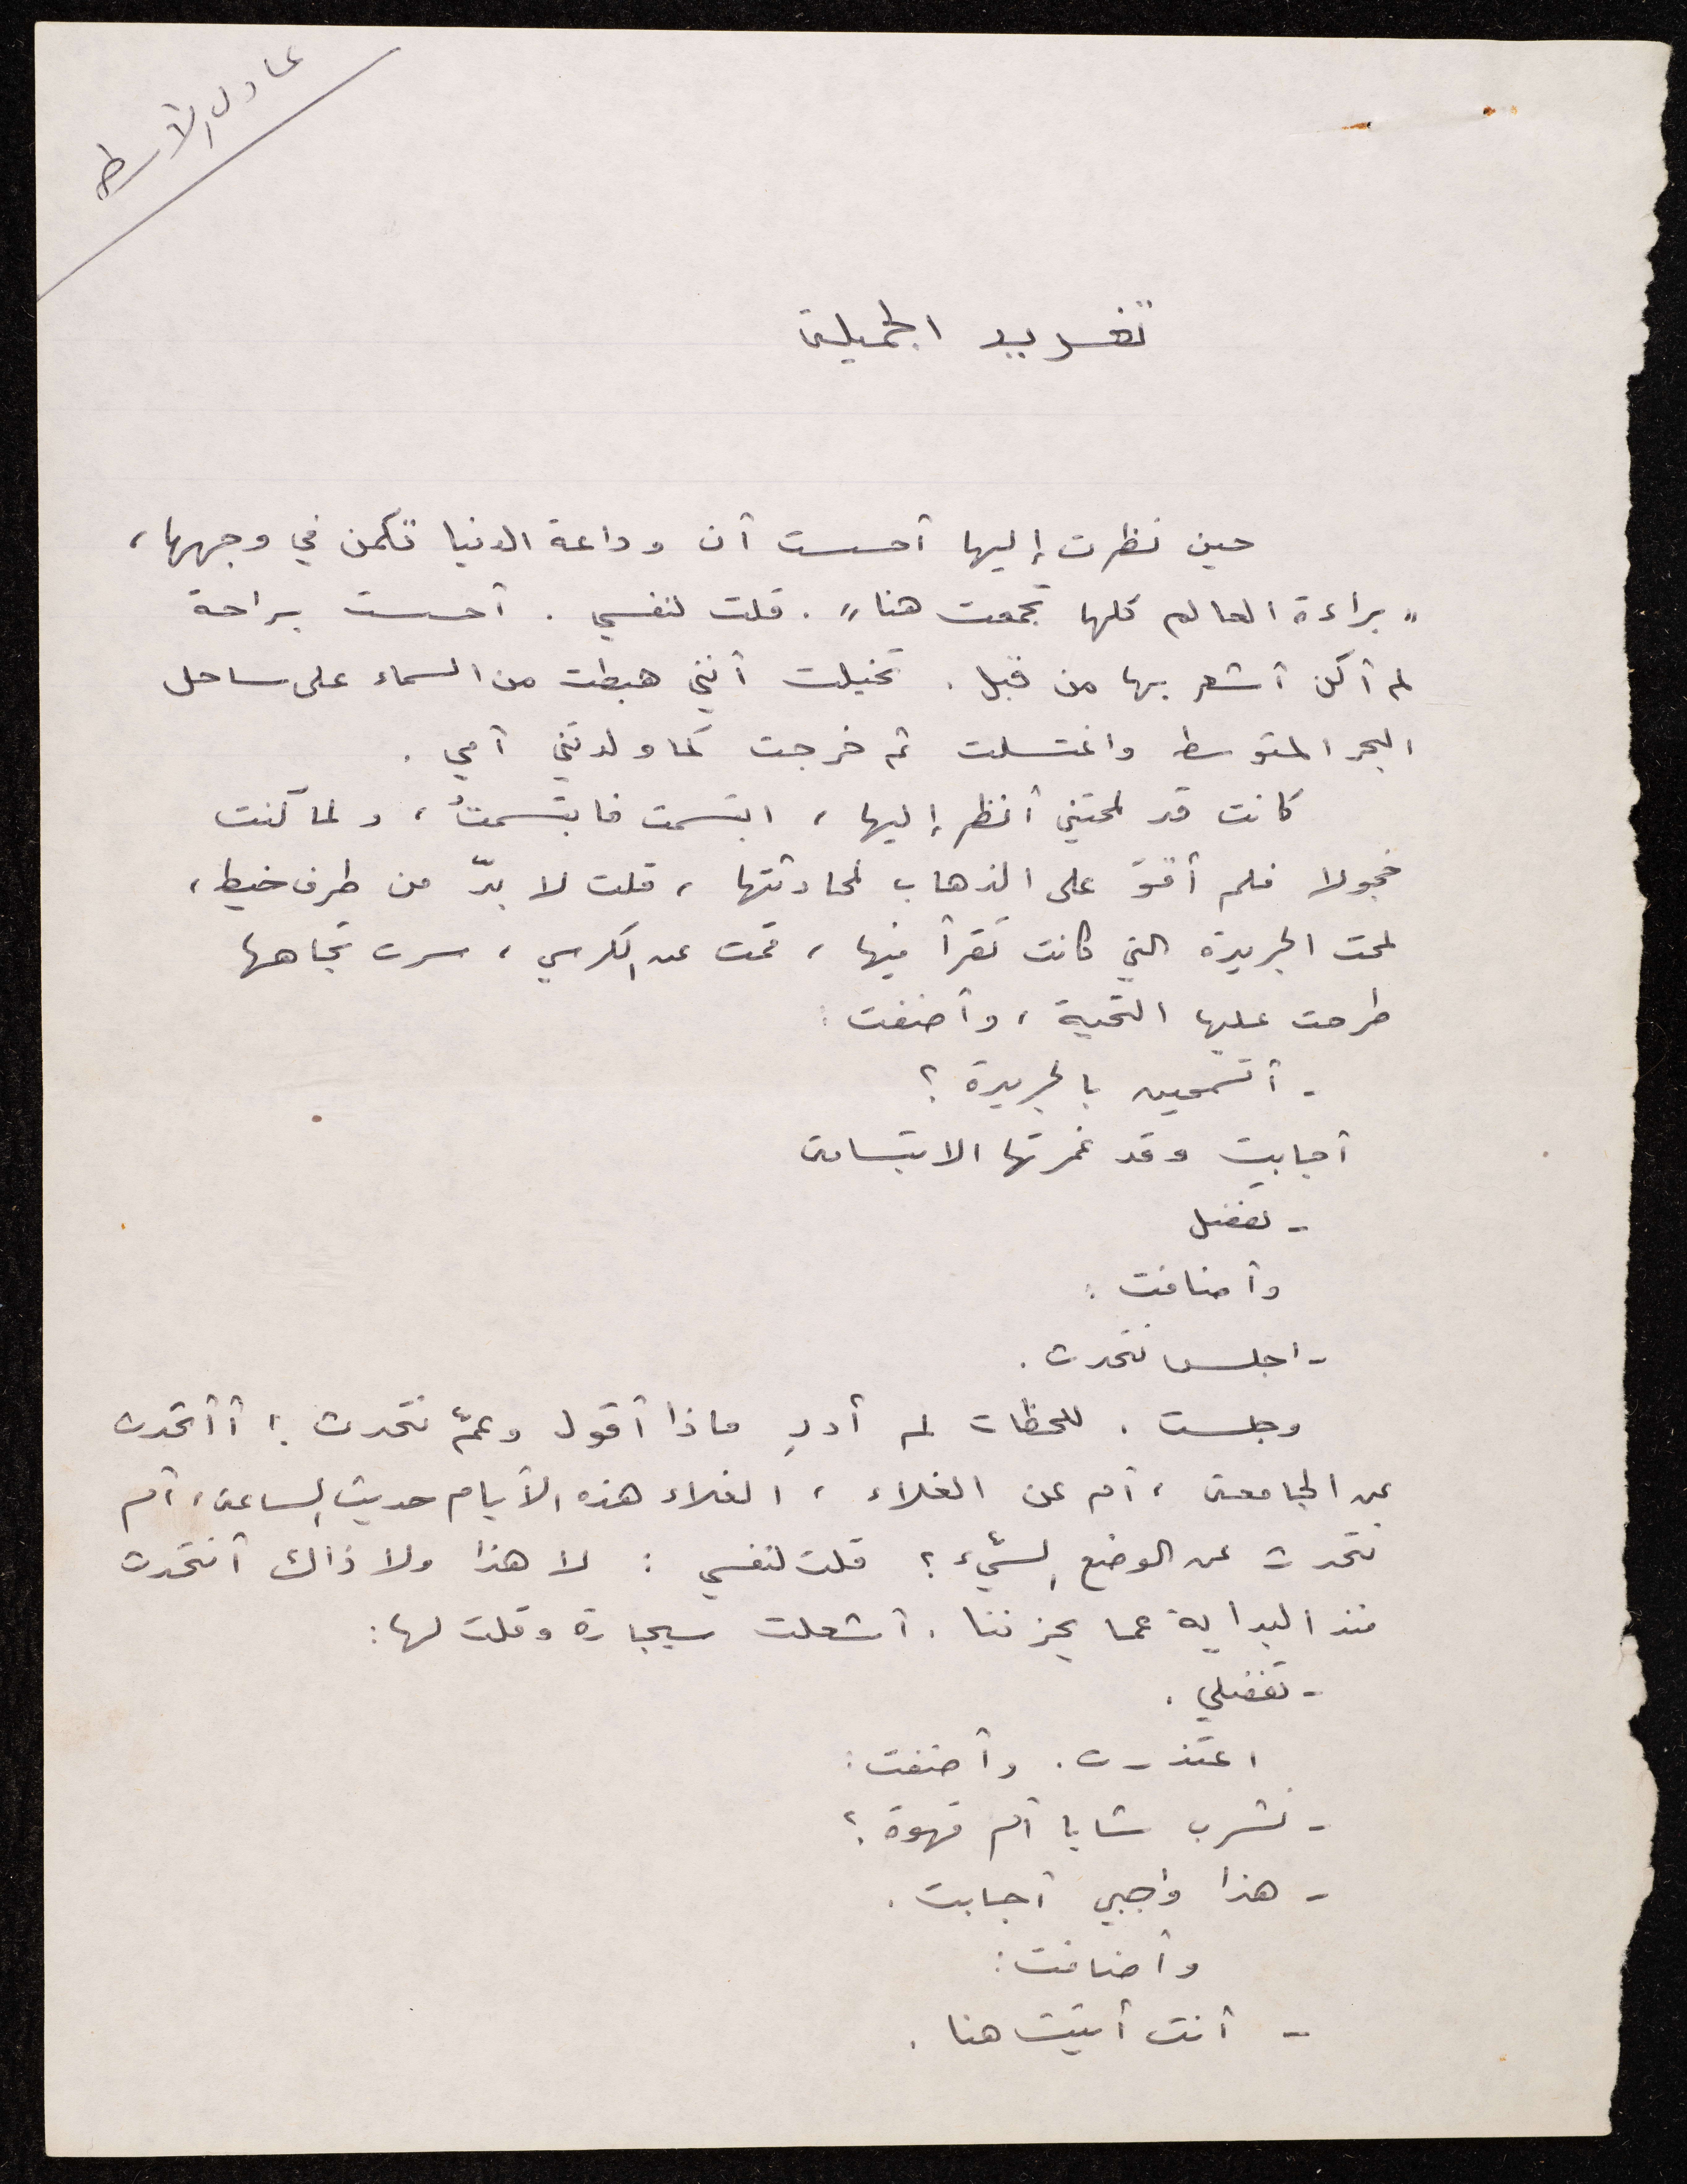 عادل الأسطة
تغريد الجميلة
حين نظرت إليها أحسست أن وداعة الدنيا تكمن في وجهها،
" براءة العالم كلها تجمعت هنا ". قلت لنفسي . أحسست براحة
لم أكن أشعر بها من قبل . تخيلت أنني هبطت من السماء على ساحل
البحر المتوسط واغتسلت ثم خرجت كما ولدتني أمي .
كانت قد لمحتني أنظر إليها ، ابتسمت فابتسمتُ ، ولما كنت
خجولا فلم أقوَ على الذهاب لمحادثتها ، قلت لا بدّ من طرف خيط ،
لمحت الجريدة التي كانت تقرأ فيها ، قمت عن الكرسي ، سرت تجاهها
طرحت عليها التحية ، وأضفت :
- أتسمحين بالجريدة ؟
أجابت وقد غمرتها الابتسامة
- تفضل
وأضافت :
- اجلس نتحدث .
وجلست . للحظات لم أدرِ ماذا أقول وعمّ نتحدث ؟ أأتحدث
عن الجامعة ، أم عن الغلاء ، الغلاء هذه الأيام حديث الساعة ، أم
نتحدث عن الوضع السيّء ؟ قلت لنفسي : لا هذا ولا ذاك أنتحدث
منذ البداية عما يحزننا . أشعلت سيجارة وقلت لها :
- تفضلي .
اعتذرت . وأضفت :
- نشرب شايا أم قهوة ؟
- هذا واجبي أجابت .
وأضافت :
- أنت أتيت هنا .